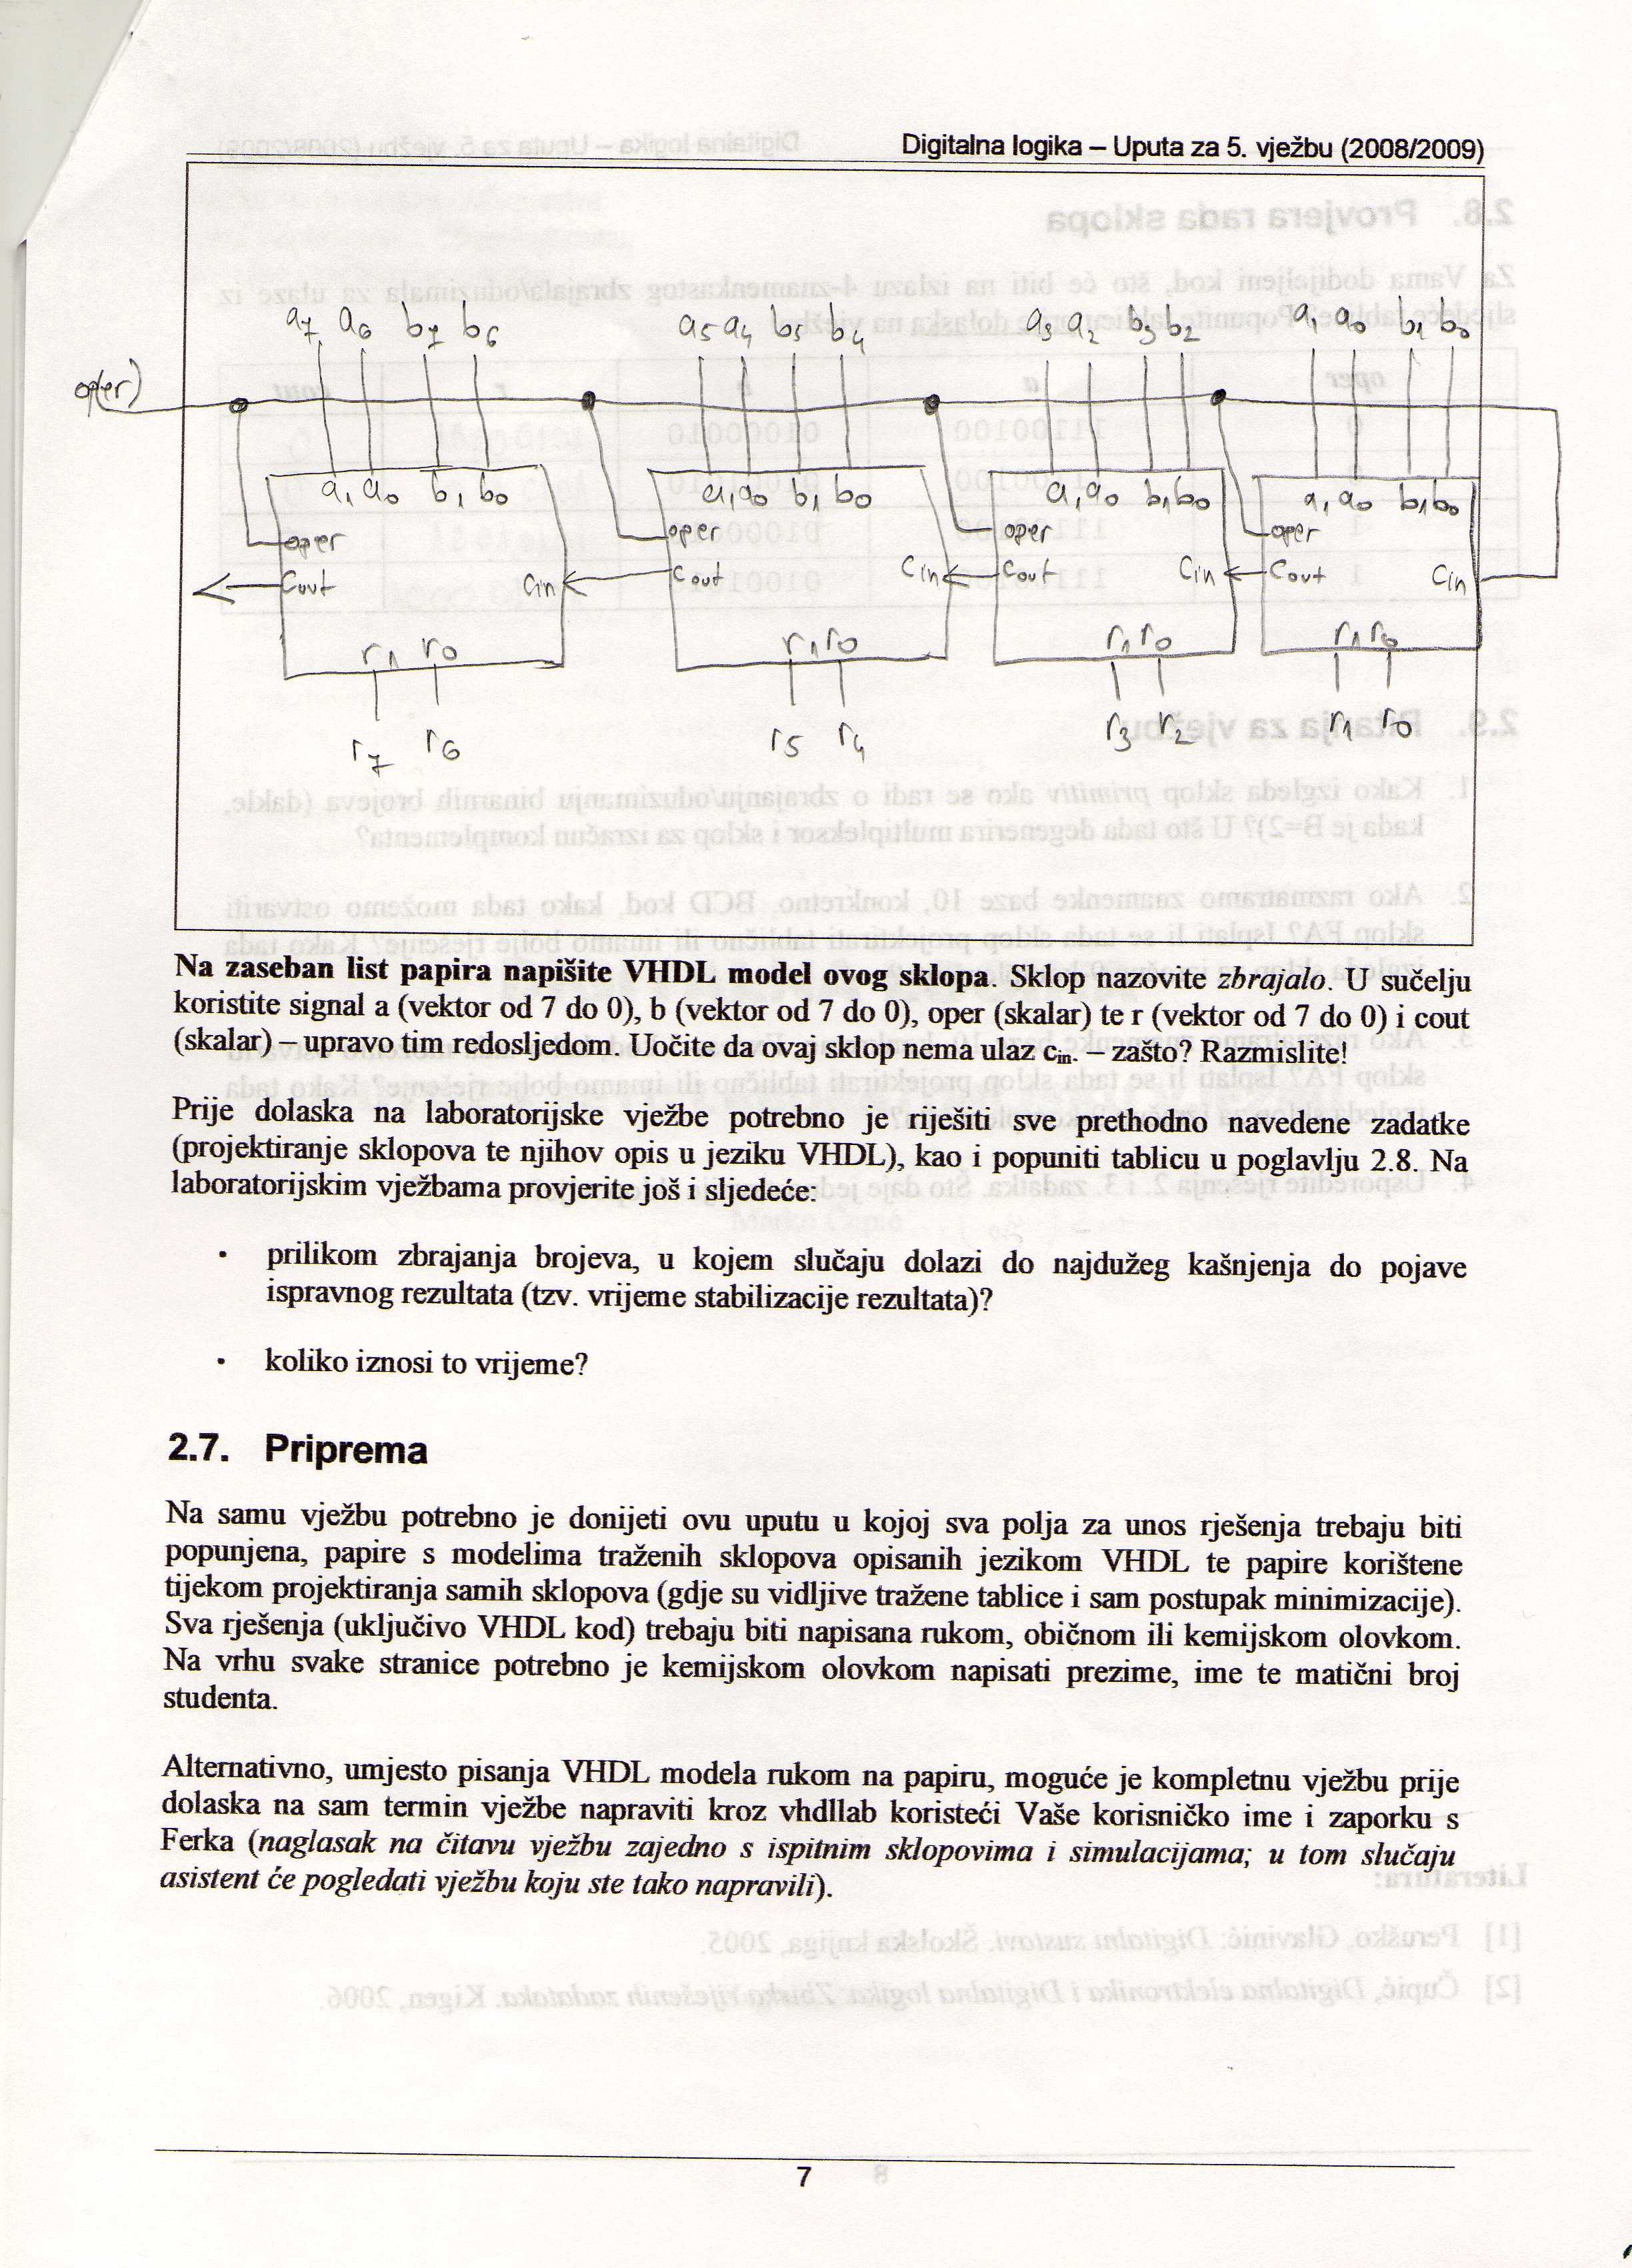 Digitalna logika – Uputa za 5. vježbu (2008/2009)
a7 a6 b7 b6 a5 a4 b5 b4 a3 a2 b3 b2 a1 a0 b1 b0
oper
a1 a0 b1 b0 a1 a0 b1 b0 a1 a0 b1 b0 a1 a0 b1 b0
oper oper oper oper
Cout Cin Cout Cin Cout Cin Cout Cin
r1 r0 r1 r0 r1 r0 r1 r0
r7 r6 r5 r4 r3 r2 r1 r0
Na zaseban list papira napišite VHDL model ovog sklopa. Sklop nazovite zbrajalo. U sučelju
koristite signal a (vektor od 7 do 0), b (vektor od 7 do 0), oper (skalar) te r (vektor od 7 do 0) i cout
(skalar) – upravo tim redosljedom. Uočite da ovaj sklop nema ulaz cin. – zašto? Razmislite!
Prije dolaska na laboratorijske vježbe potrebno je riješiti sve prethodno navedene zadatke
(projektiranje sklopova te njihov opis u jeziku VHDL), kao i popuniti tablicu u poglavlju 2.8. Na
laboratorijskim vježbama provjerite još i sljedeće:
• prilikom zbrajanja brojeva, u kojem slučaju dolazi do najdužeg kašnjenja do pojave
ispravnog rezultata (tzv. vrijeme stabilizacije rezultata)?
• koliko iznosi to vrijeme?
2.7. Priprema
Na samu vježbu potrebno je donijeti ovu uputu u kojoj sva polja za unos rješenja trebaju biti
popunjena, papire s modelima traženih sklopova opisanih jezikom VHDL te papire korištene
tijekom projektiranja samih sklopova (gdje su vidljive tražene tablice i sam postupak minimizacije).
Sva rješenja (uključivo VHDL kod) trebaju biti napisana rukom, običnom ili kemijskom olovkom.
Na vrhu svake stranice potrebno je kemijskom olovkom napisati prezime, ime te matični broj
studenta.
Alternativno, umjesto pisanja VHDL modela rukom na papiru, moguće je kompletnu vježbu prije
dolaska na sam termin vježbe napraviti kroz vhdllab koristeći Vaše korisničko ime i zaporku s
Ferka (naglasak na čitavu vježbu zajedno s ispitnim sklopovima i simulacijama; u tom slučaju
asistent će pogledati vježbu koju ste tako napravili).
7